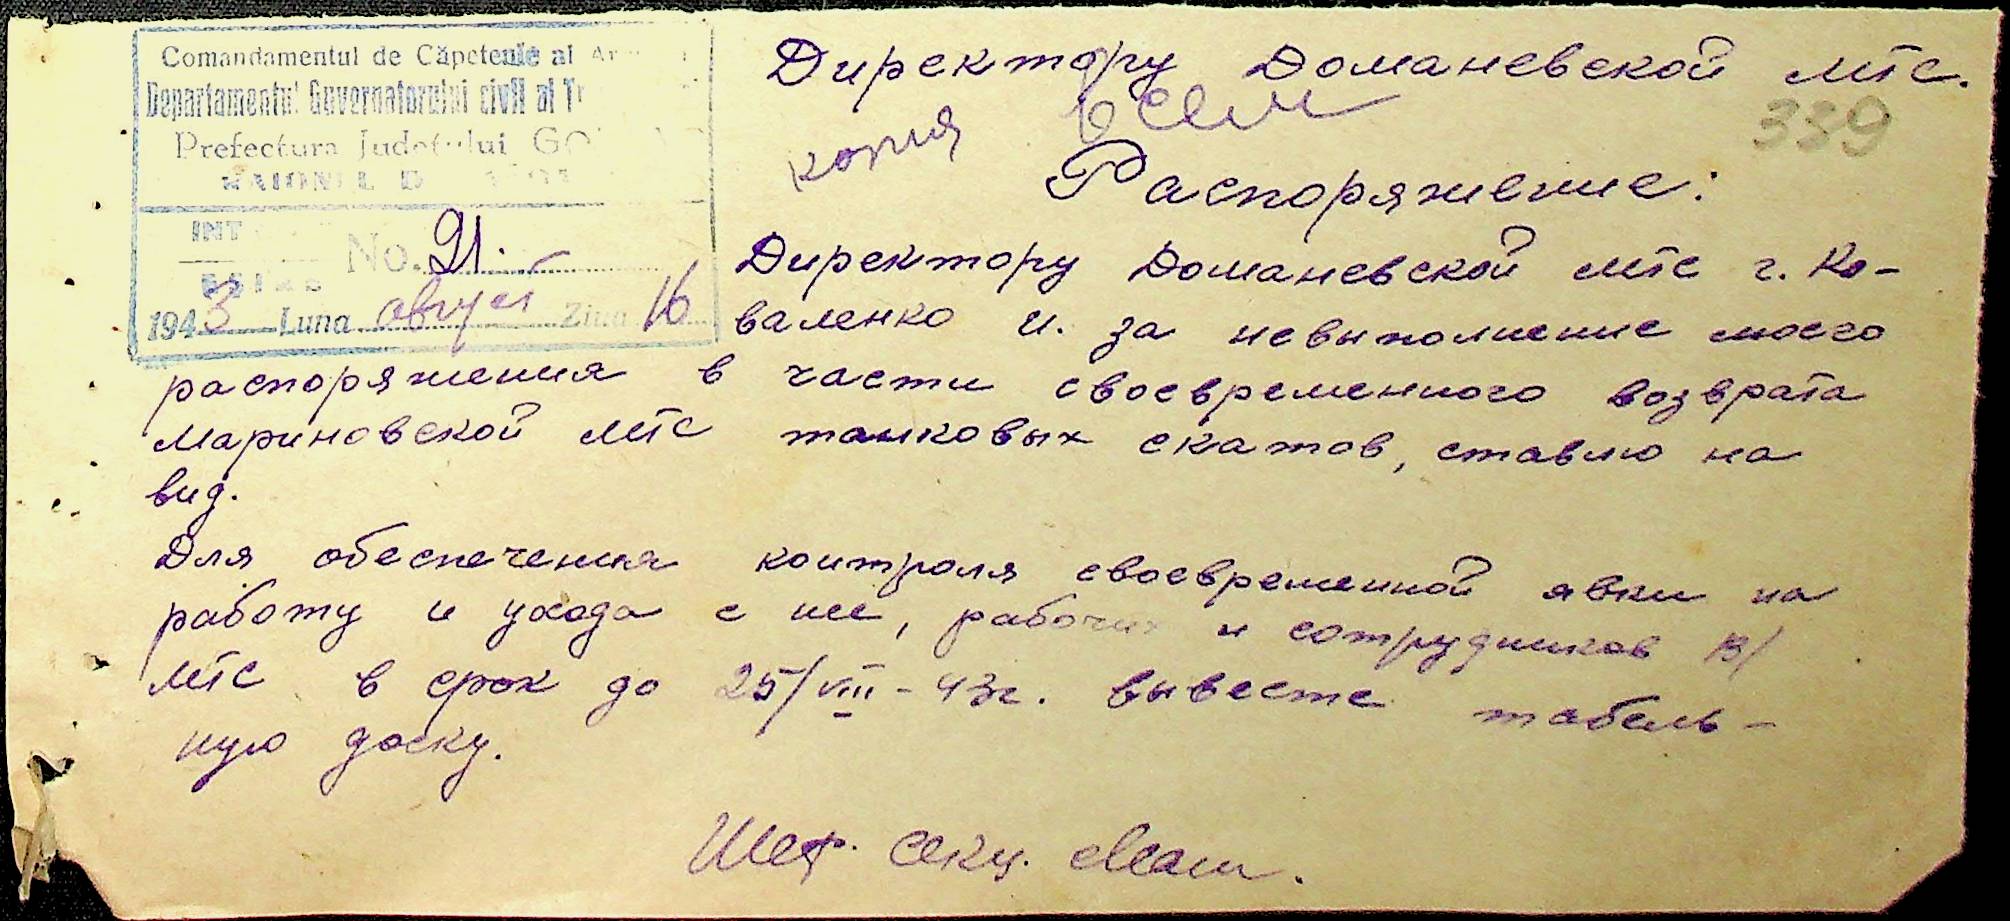 Comandamentul de Căpetenie al
Departamentul Guvernatorului civil al Tr
Prefectura Județului
INT
No. 91.
1943 Luna август Ziua 16
Директору Домановской МТС.
копия всем
339
Распоряжение:
Директору Домановской МТС г. Ко-
валенко И. за невыполнение моего
распоряжения в части своевременного возврата
Мариновской МТС танковых скатов, ставлю на
вид.
Для обеспечения контроля своевременной явки на
работу и ухода с нее, рабочих и сотрудников В/
МТС в срок до 25/VIII-43г. вывесте табель-
ную доску.
Шеф. Секц. Маш.